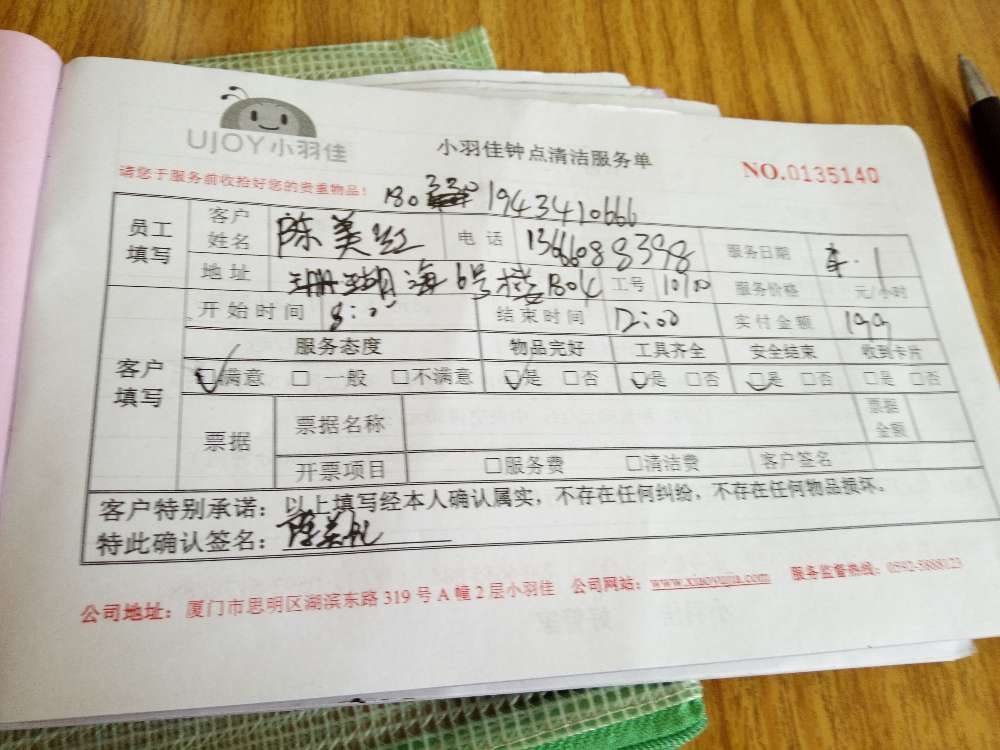 UJOY小羽佳
小羽佳钟点清洁服务单
NO.0135140
请您于服务前收拾好您的贵重物品！
180 330 1943410666
员工填写 客户姓名 陈美红 电话 13666088398 服务日期
地址 珊瑚海6号楼1304 工号 10100 服务价格 元/小时
客户填写 开始时间 8:00 结束时间 12:00 实付金额 199
服务态度 物品完好 工具齐全 安全结束 收到卡片
☑满意 □一般 □不满意 ☑是 □否 ☑是 □否 ☑是 □否 □是 □否
票据 票据名称 票据金额
开票项目 □服务费 □清洁费 客户签名
客户特别承诺：以上填写经本人确认属实，不存在任何纠纷，不存在任何物品损坏。
特此确认签名：陈美红
公司地址：厦门市思明区湖滨东路319号A幢2层小羽佳 公司网站：www.xiaoyujia.com 服务监督热线：0592-5888123